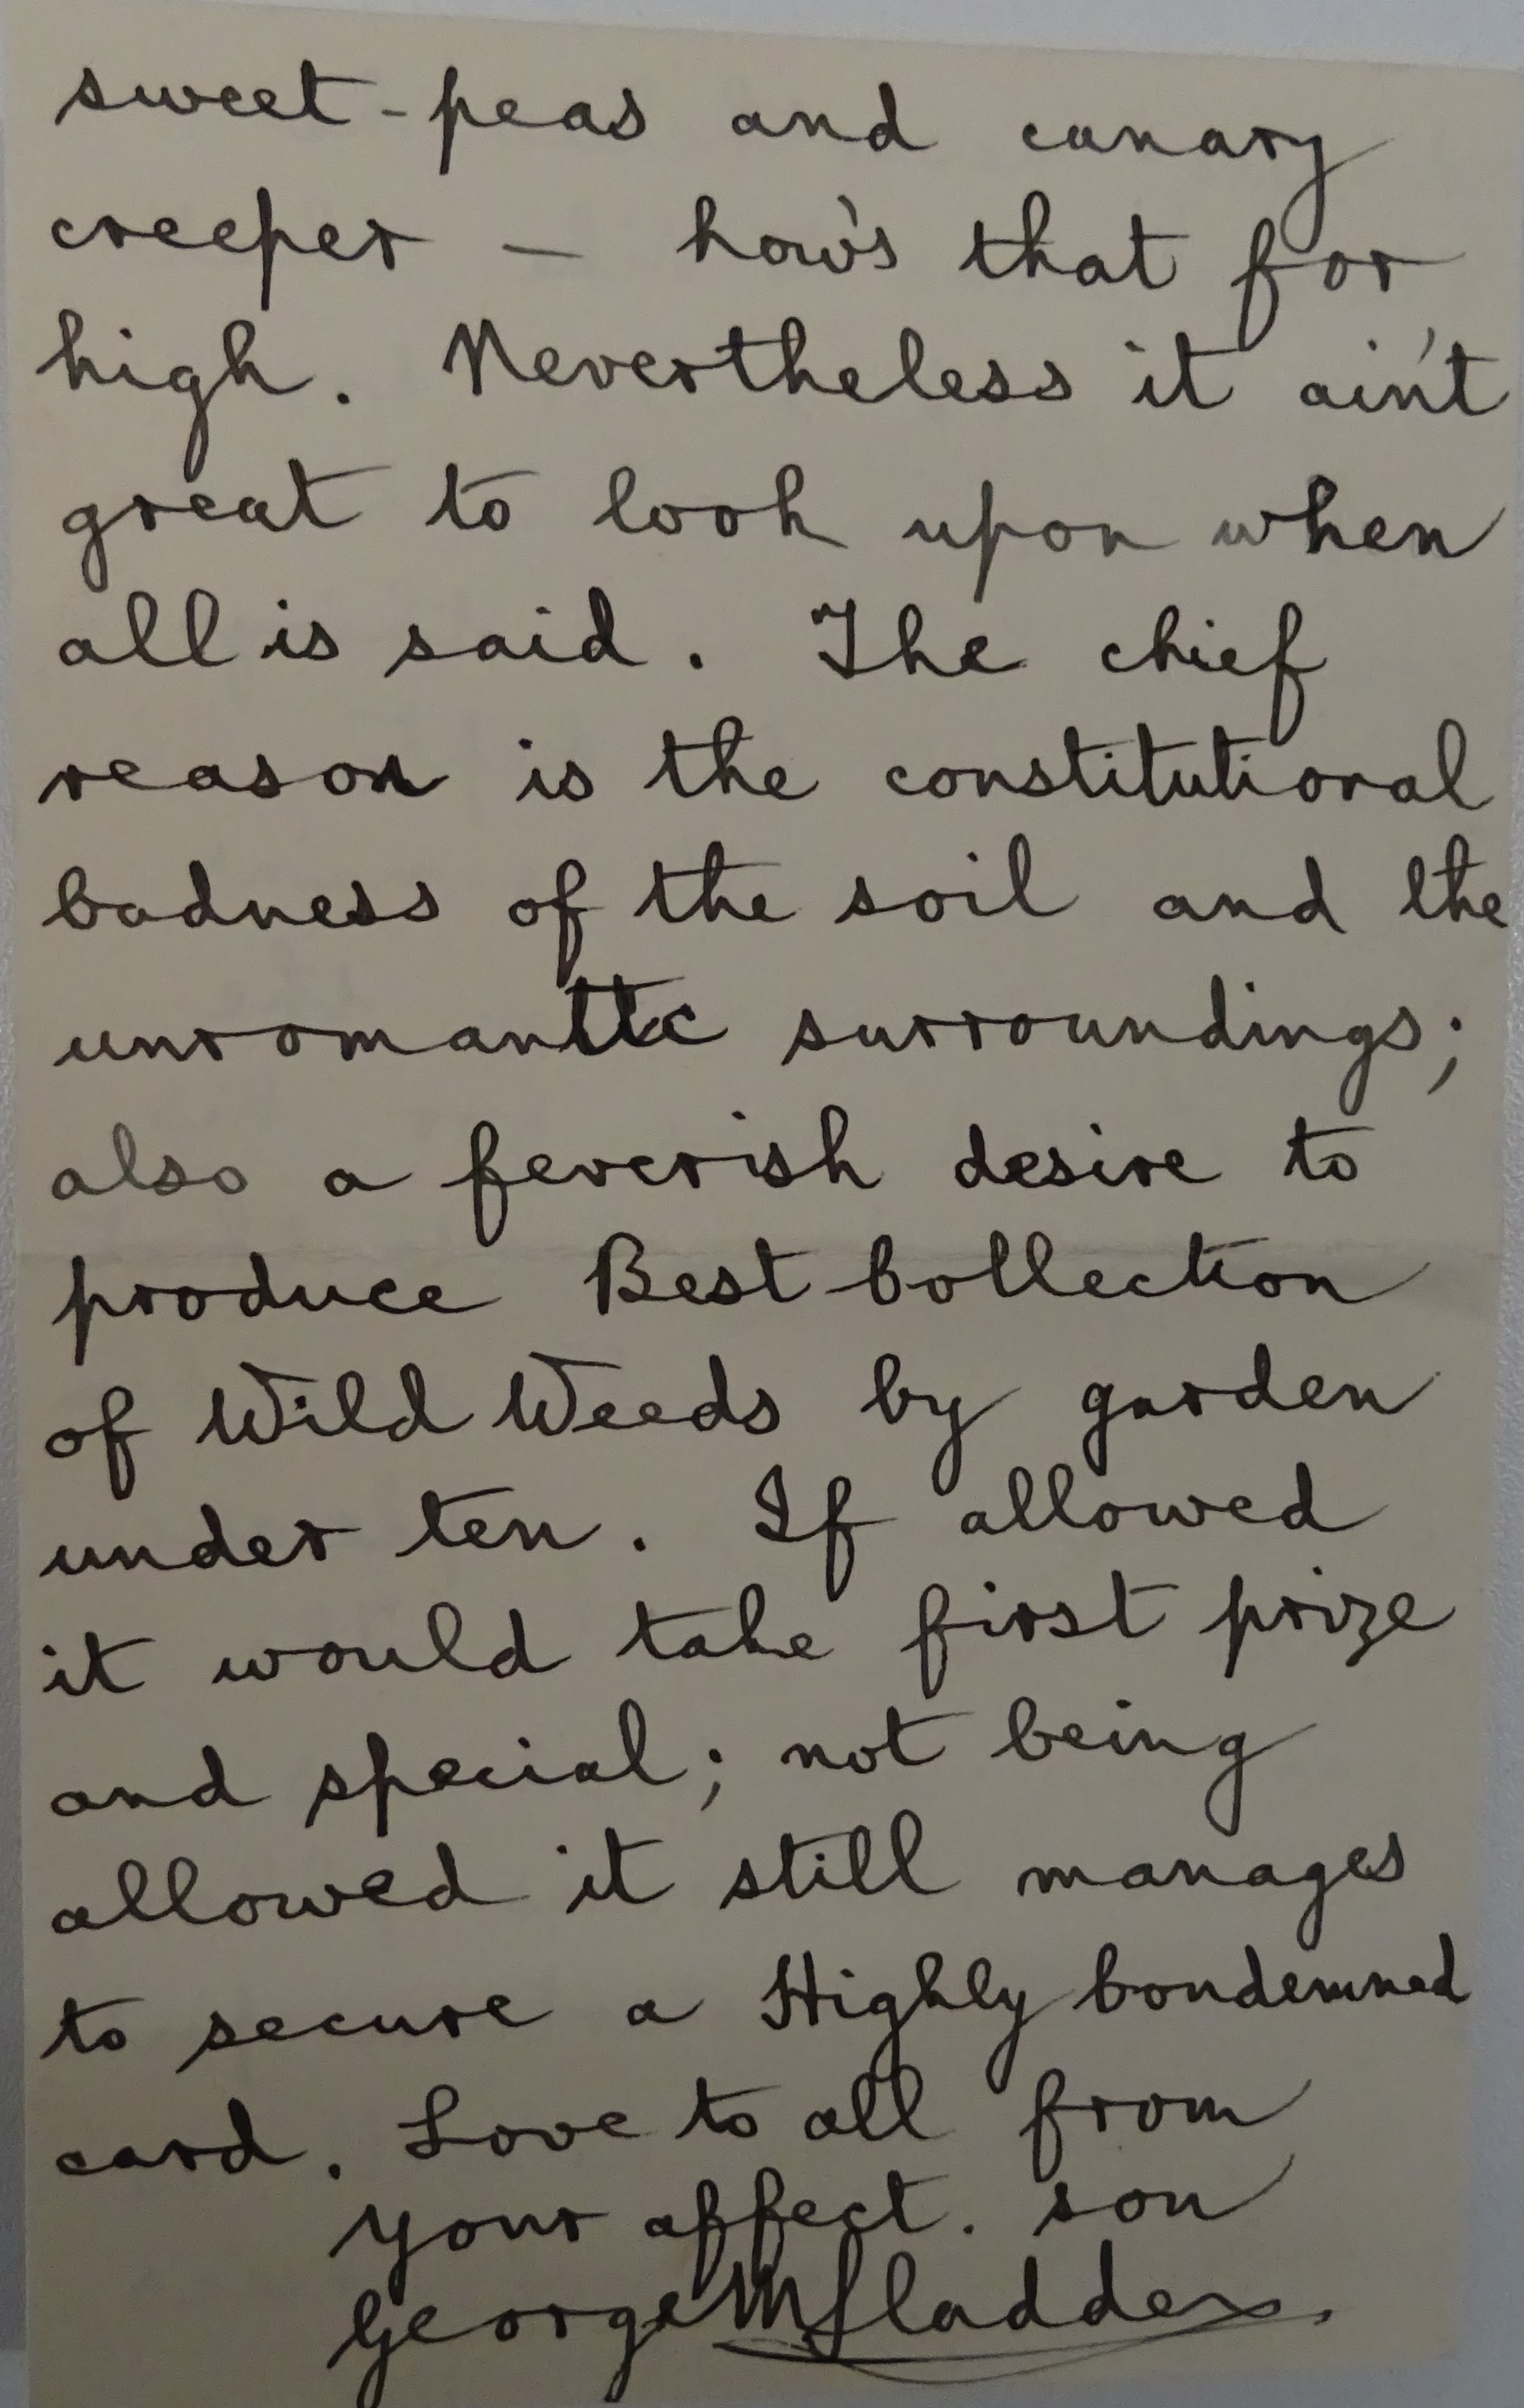 sweet-peas and canary
creeper — how's that for
high. Nevertheless it ain't
great to look upon when
all is said. The chief
reason is the constitutional
badness of the soil and the
unromantic surroundings;
also a feverish desire to
produce Best Collection
of Wild Weeds by garden
under ten. If allowed
it would take first prize
and special; not being
allowed it still manages
to secure a Highly Condemned
card. Love to all from
your affect. son
George